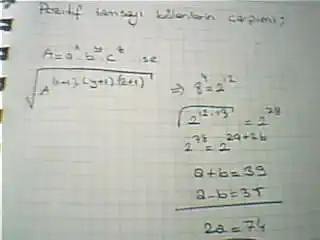 Pozitif tamsayı bölenlerin çarpımı;
A = a^x . b^y . c^z ise
√(A^((x+1).(y+1).(z+1)))
⇒ 8^4 = 2^12
√(2^(12.13)) = 2^78
2^78 = 2^(2a+2b)
a+b = 39
a-b = 35
2a = 74